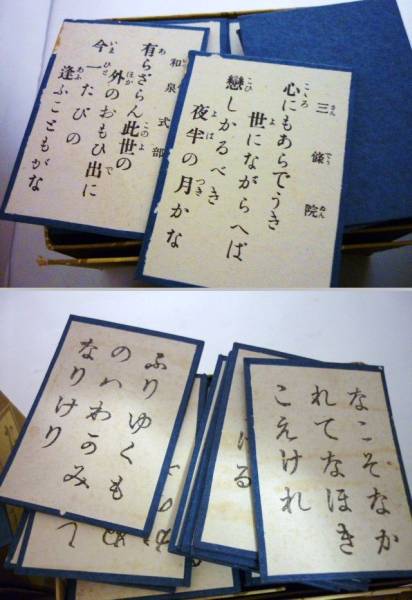 和泉式部
有らざらん此世の
外のおもひ出に
今一たびの
逢ふこともがな
三條院
心にもあらでうき
世にながらへば
戀しかるべき
夜半の月かな
ふりゆくも
のハわかみ
なりけり
なこそなか
れてなほき
こえけれ